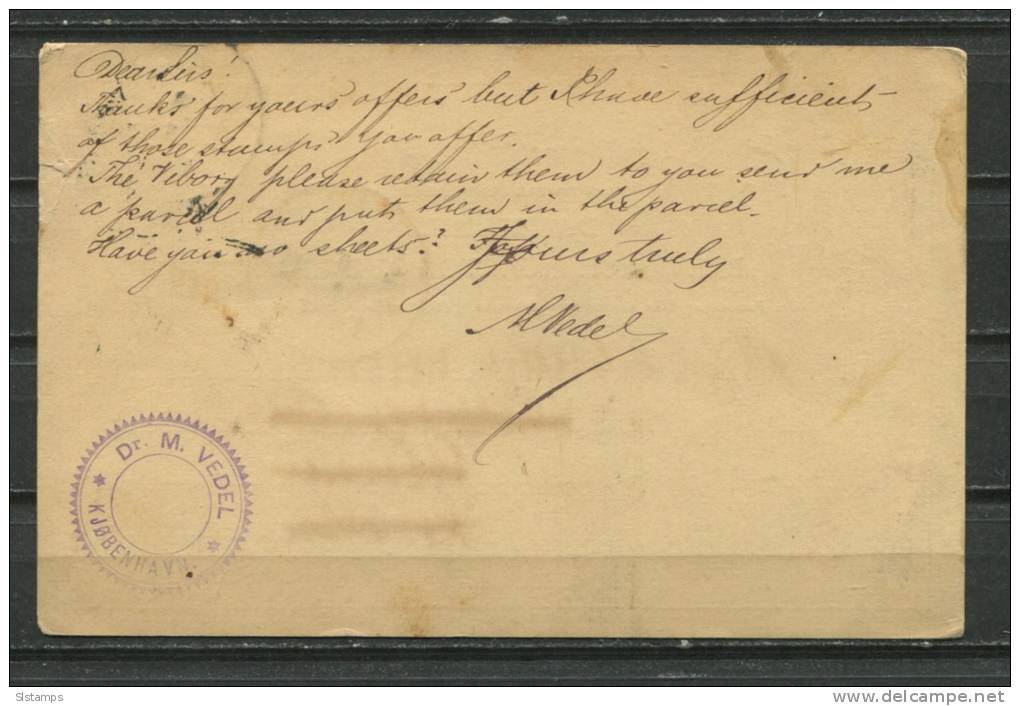 Dear Sirs!
Thanks for yours offers but I have sufficient
of those stamps you offer.
The Viborg please retain them to you send me
a parcel and puts them in the parcel.
Have you no sheets? Yours truly
M Vedel
Dr. M. VEDEL
KJØBENHAVN.
Slstamps
www.delcampe.net